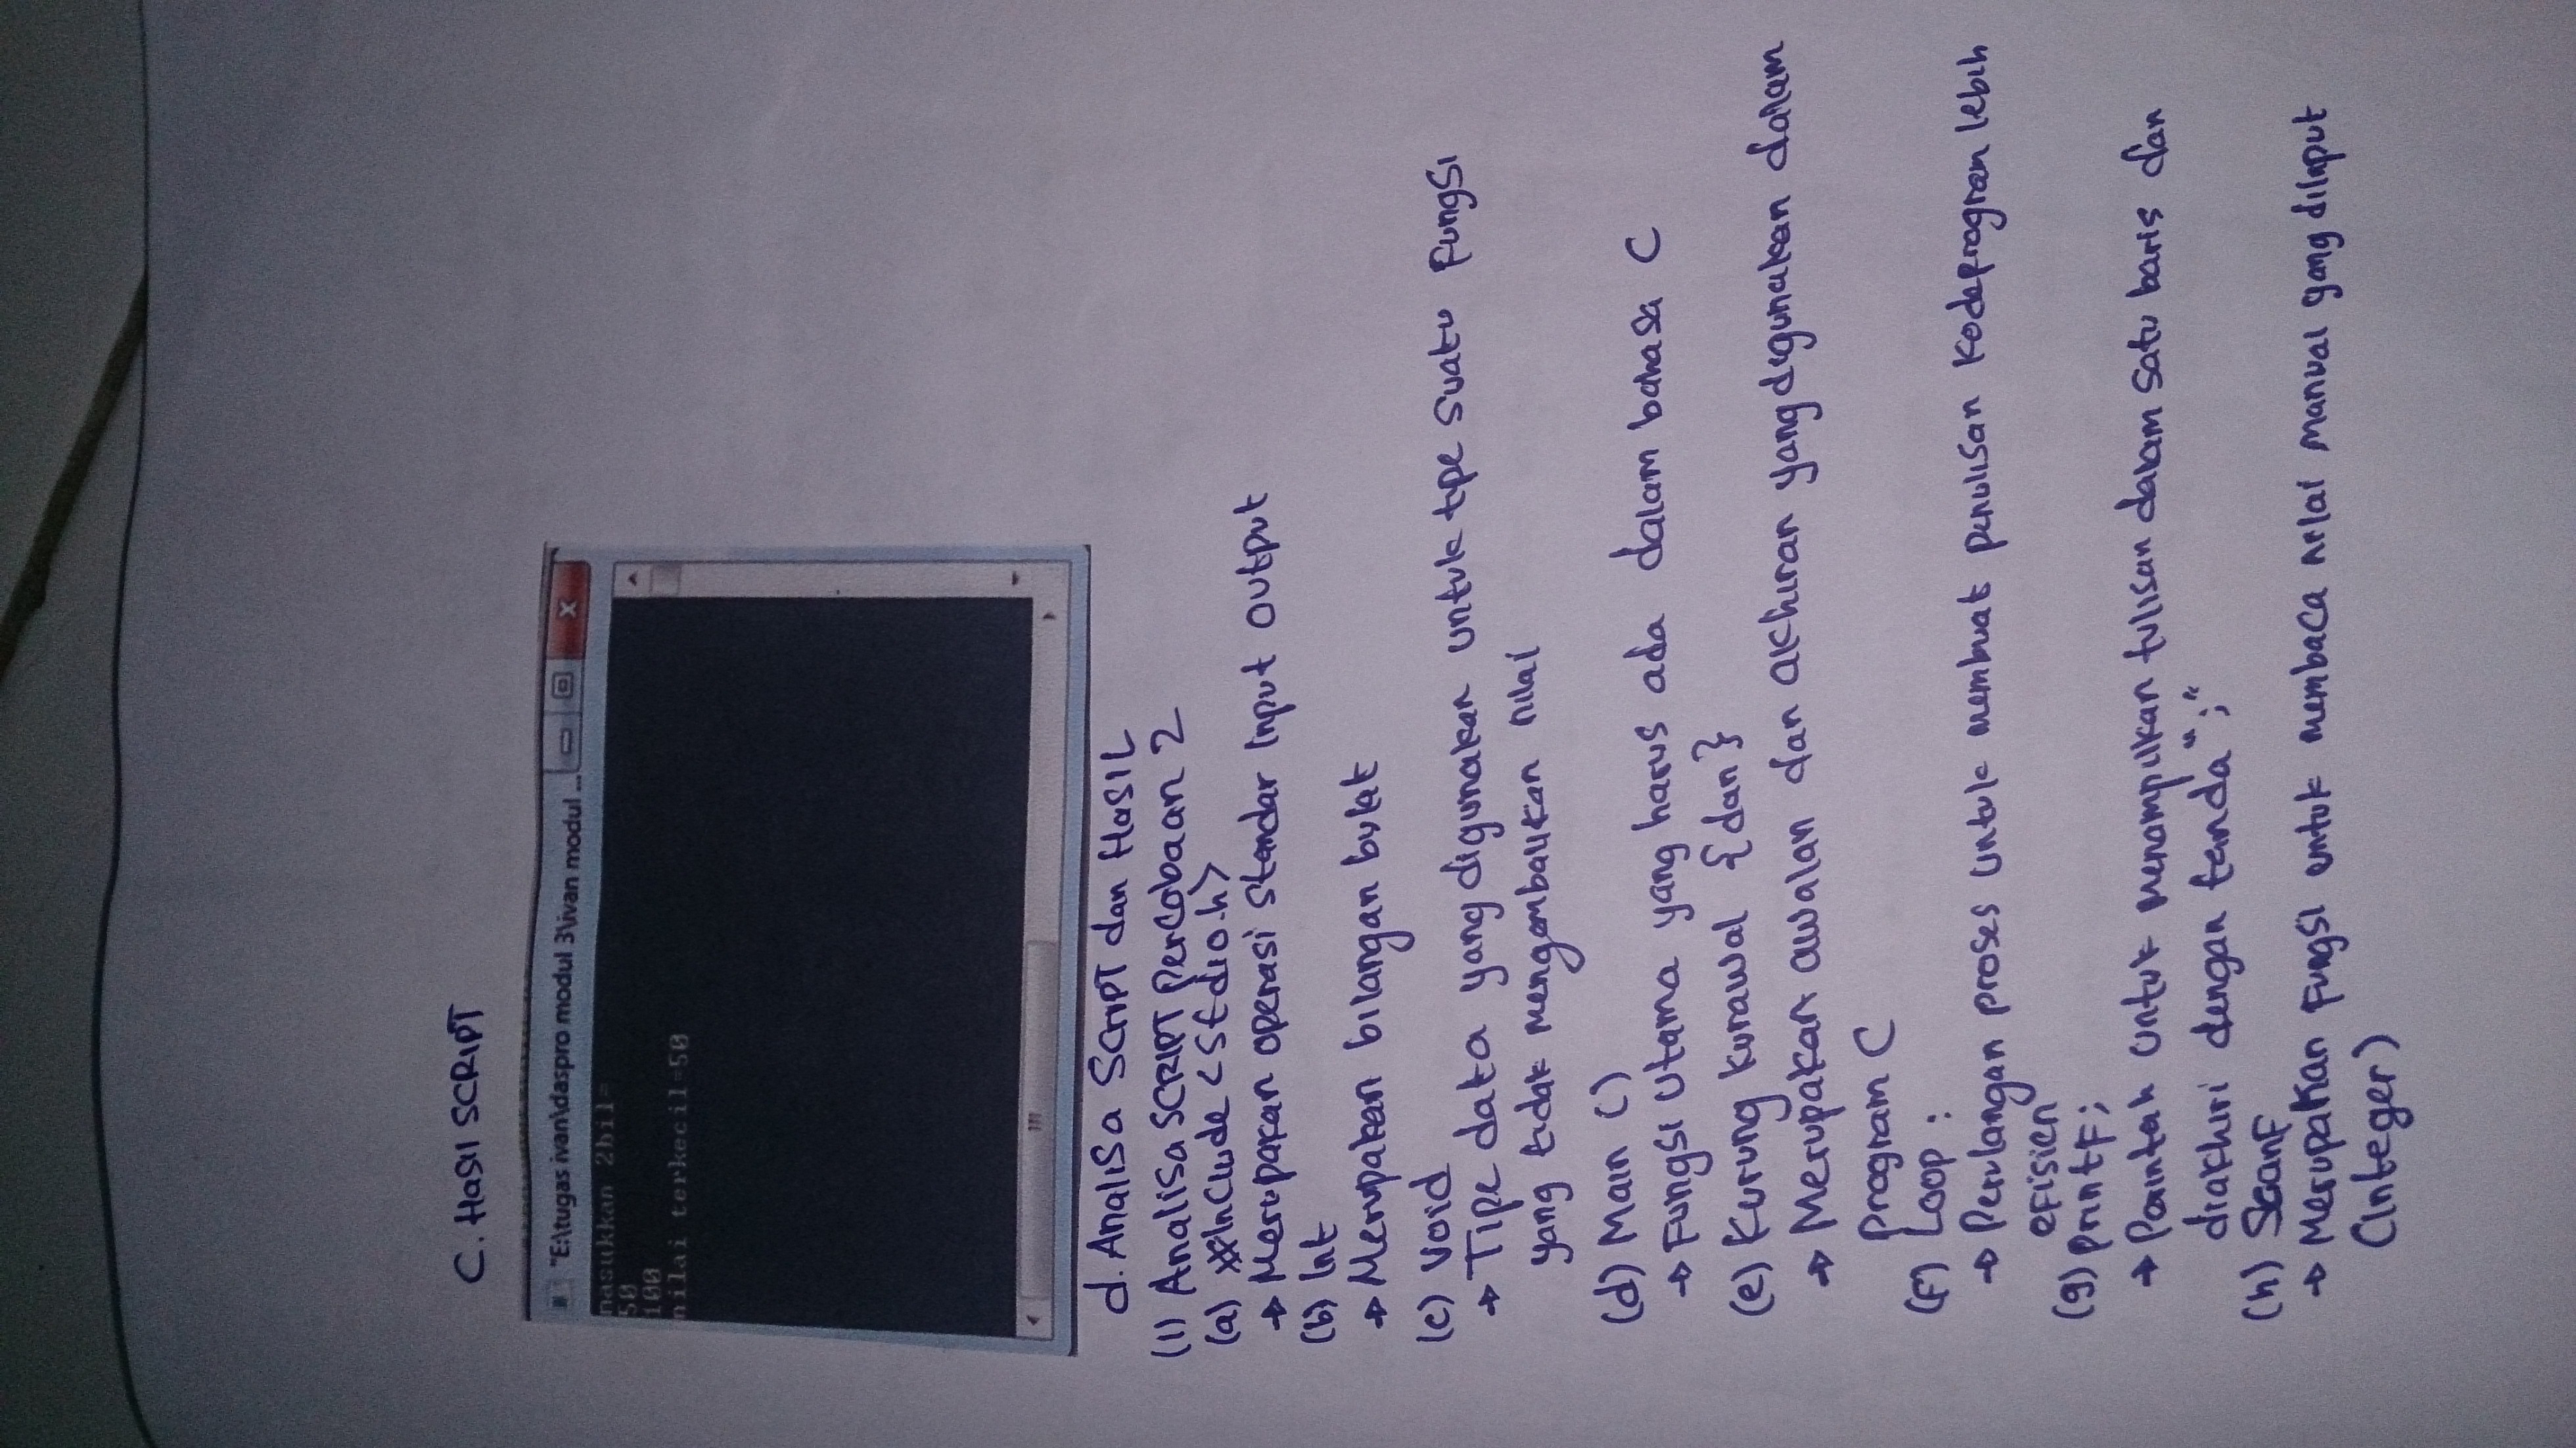 C. Hasil SCRIPT
"E:\tugas ivan\daspro modul 3\ivan modul ...
masukkan 2bil=
50
100
nilai terkecil=50
d. Analisa Script dan Hasil
(1) Analisa SCRIPT PerCobaan 2
(a) #Include <Stdio.h>
→ Merupakan operasi Standar Input output
(b) Int
→ Merupakan bilangan bulat
(c) Void
→ Tipe data yang digunakan untuk tipe Suatu Fungsi
yang tidak mengembalikan nilai
(d) Main ()
→ Fungsi Utama yang harus ada dalam bahasa C
(e) Kurung kurawal { dan }
→ Merupakan awalan dan akhiran yang digunakan dalam
program C
(f) Loop :
→ Perulangan proses Untuk membuat penulisan Kodeprogram lebih
efisien
(g) printf ;
→ Perintah Untuk menampilkan tulisan dalam satu baris dan
diakhiri dengan tanda " ; "
(h) Scanf
→ Merupakan Fungsi untuk membaca nilai manual yang diinput
(Integer)